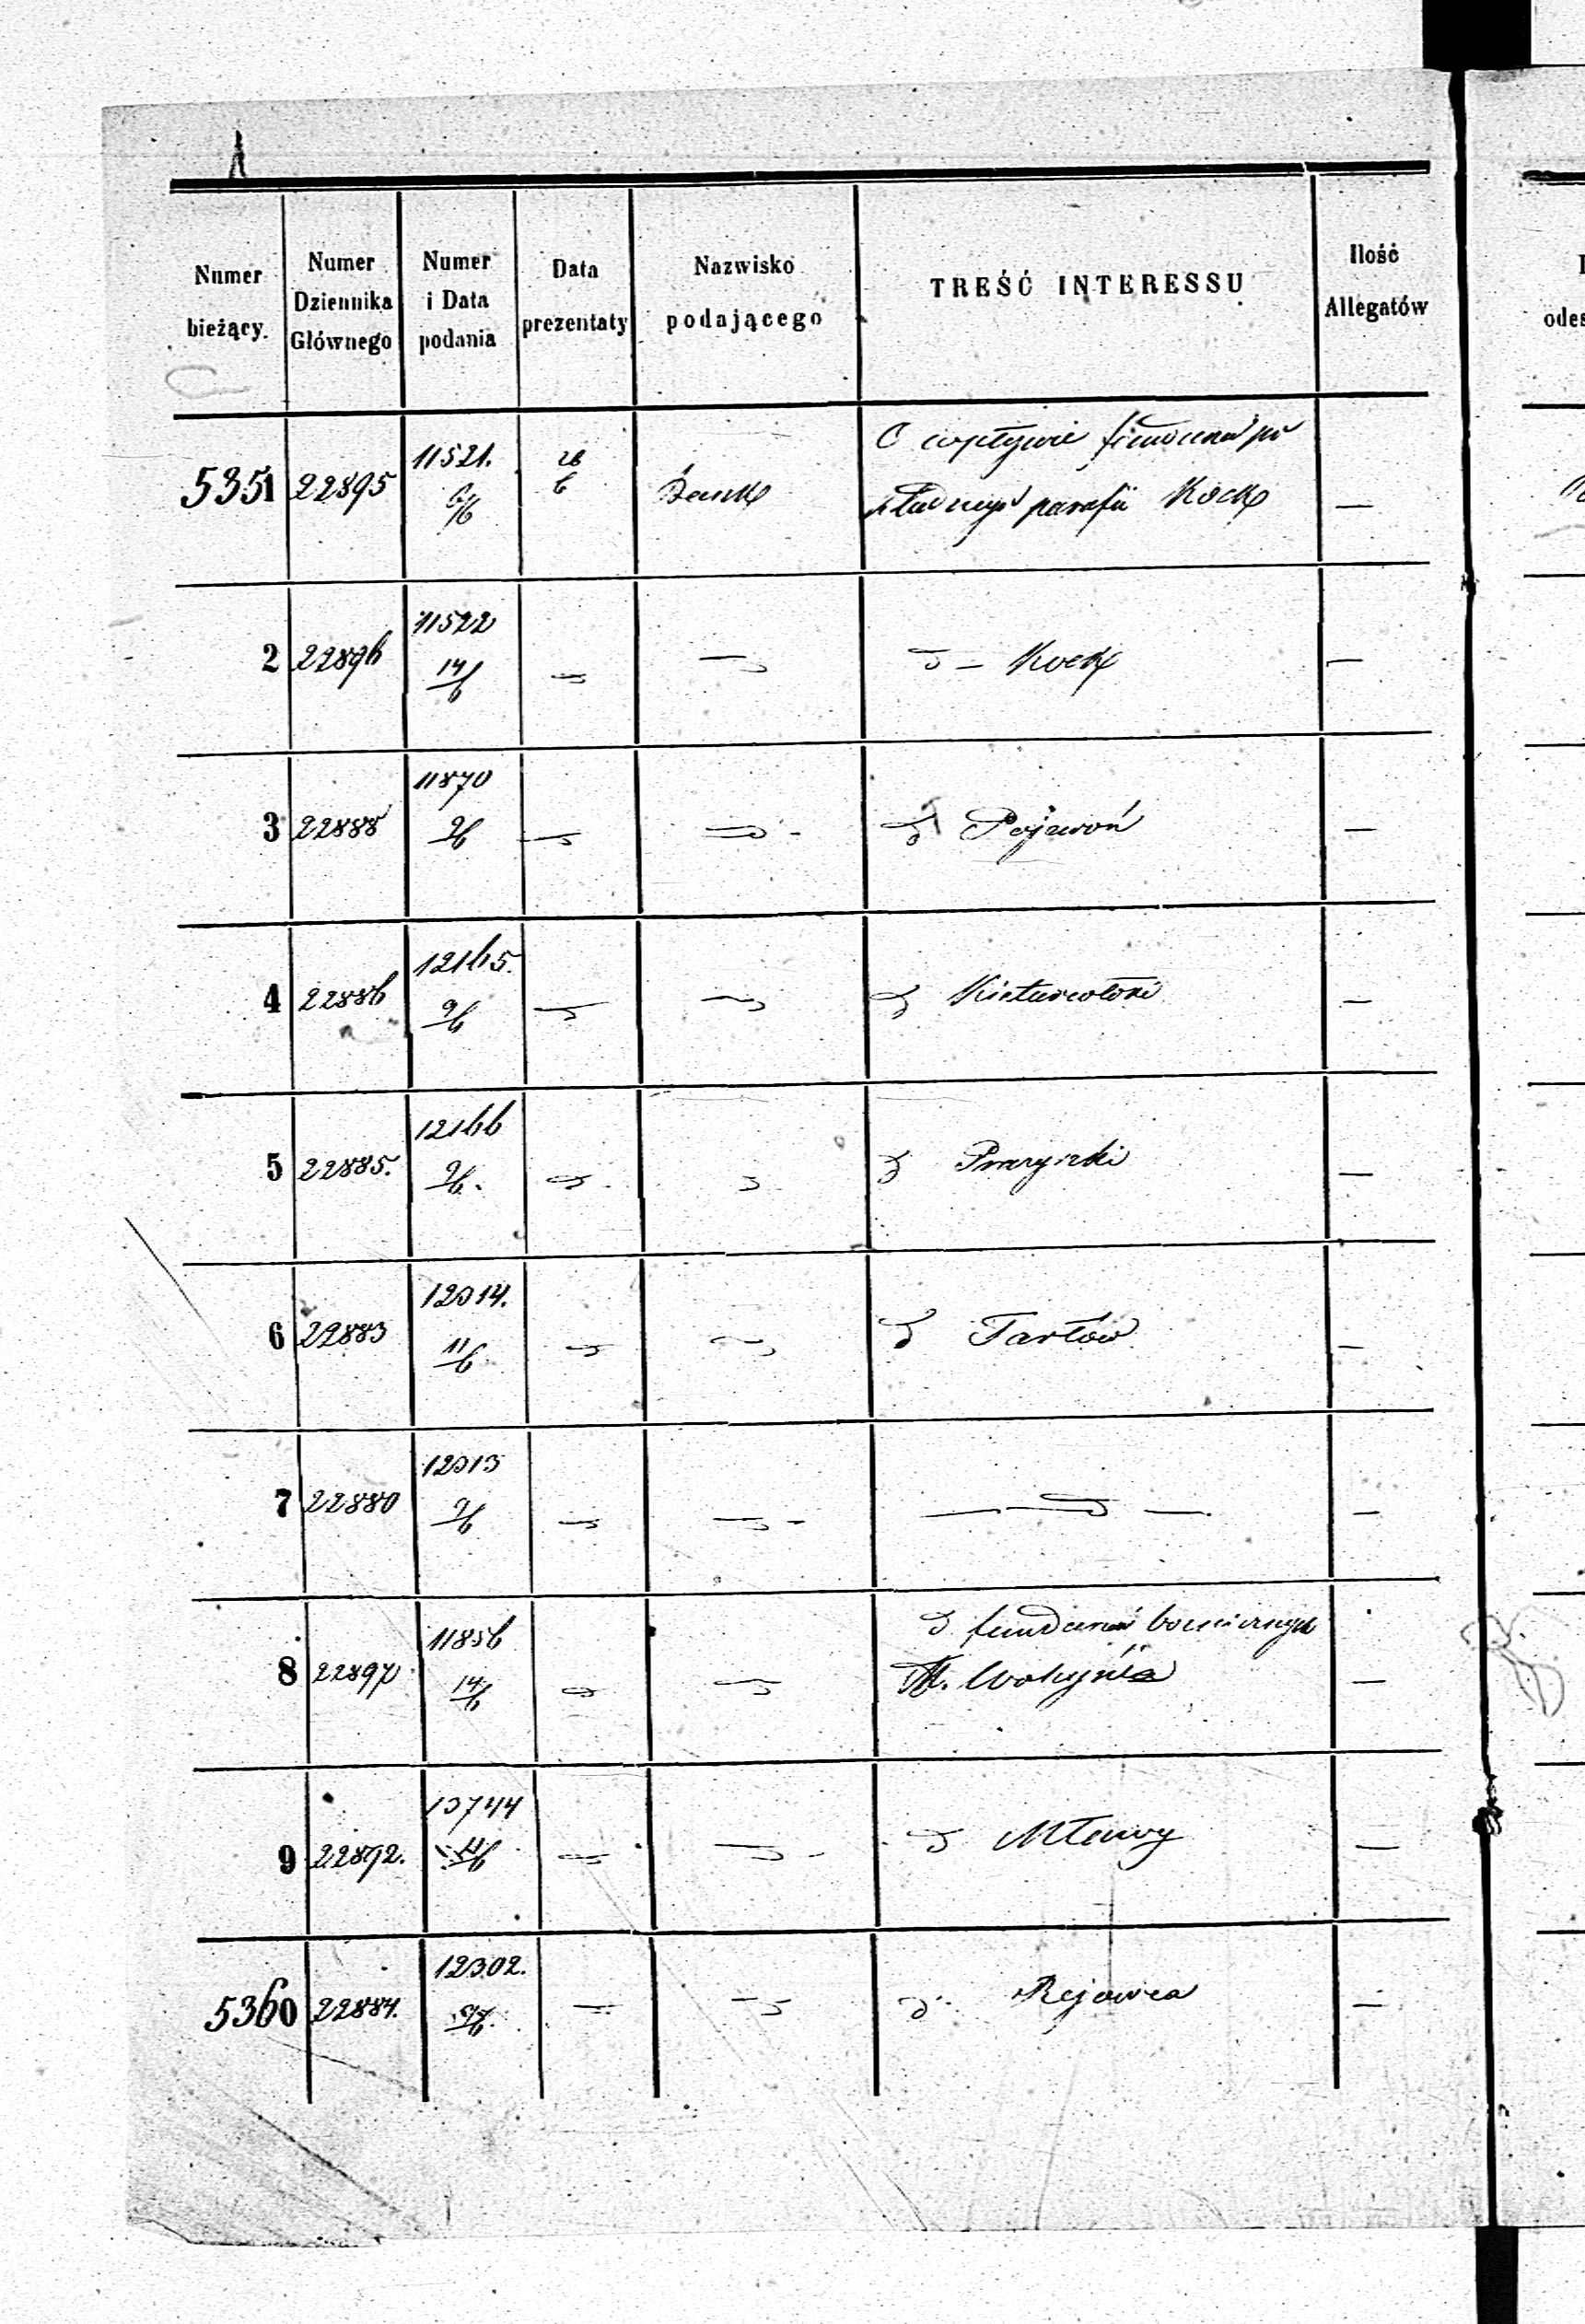 Numer bieżący.
Numer Dziennika Głównego
Numer i Data podania
Data prezentaty
Nazwisko podającego
TREŚĆ INTERESSU
Ilość Allegatów
odes
5351 22895 11521. 26/6 Bank O wpływie —
parafii Kock
2 22896 11522 14/6 — Kock —
3 22888 11870 9/6 Pojewoń —
4 22886 12165. 9/6 —
5 22885. 12166 9/6. —
6 22883 12314. 11/6 Tarłów —
7 22880 12313 9/6 —
8 22897 11856 14/6
Wohynia —
9 22892. 13744 Mławy —
5360 22884. 12302. Rejowca —